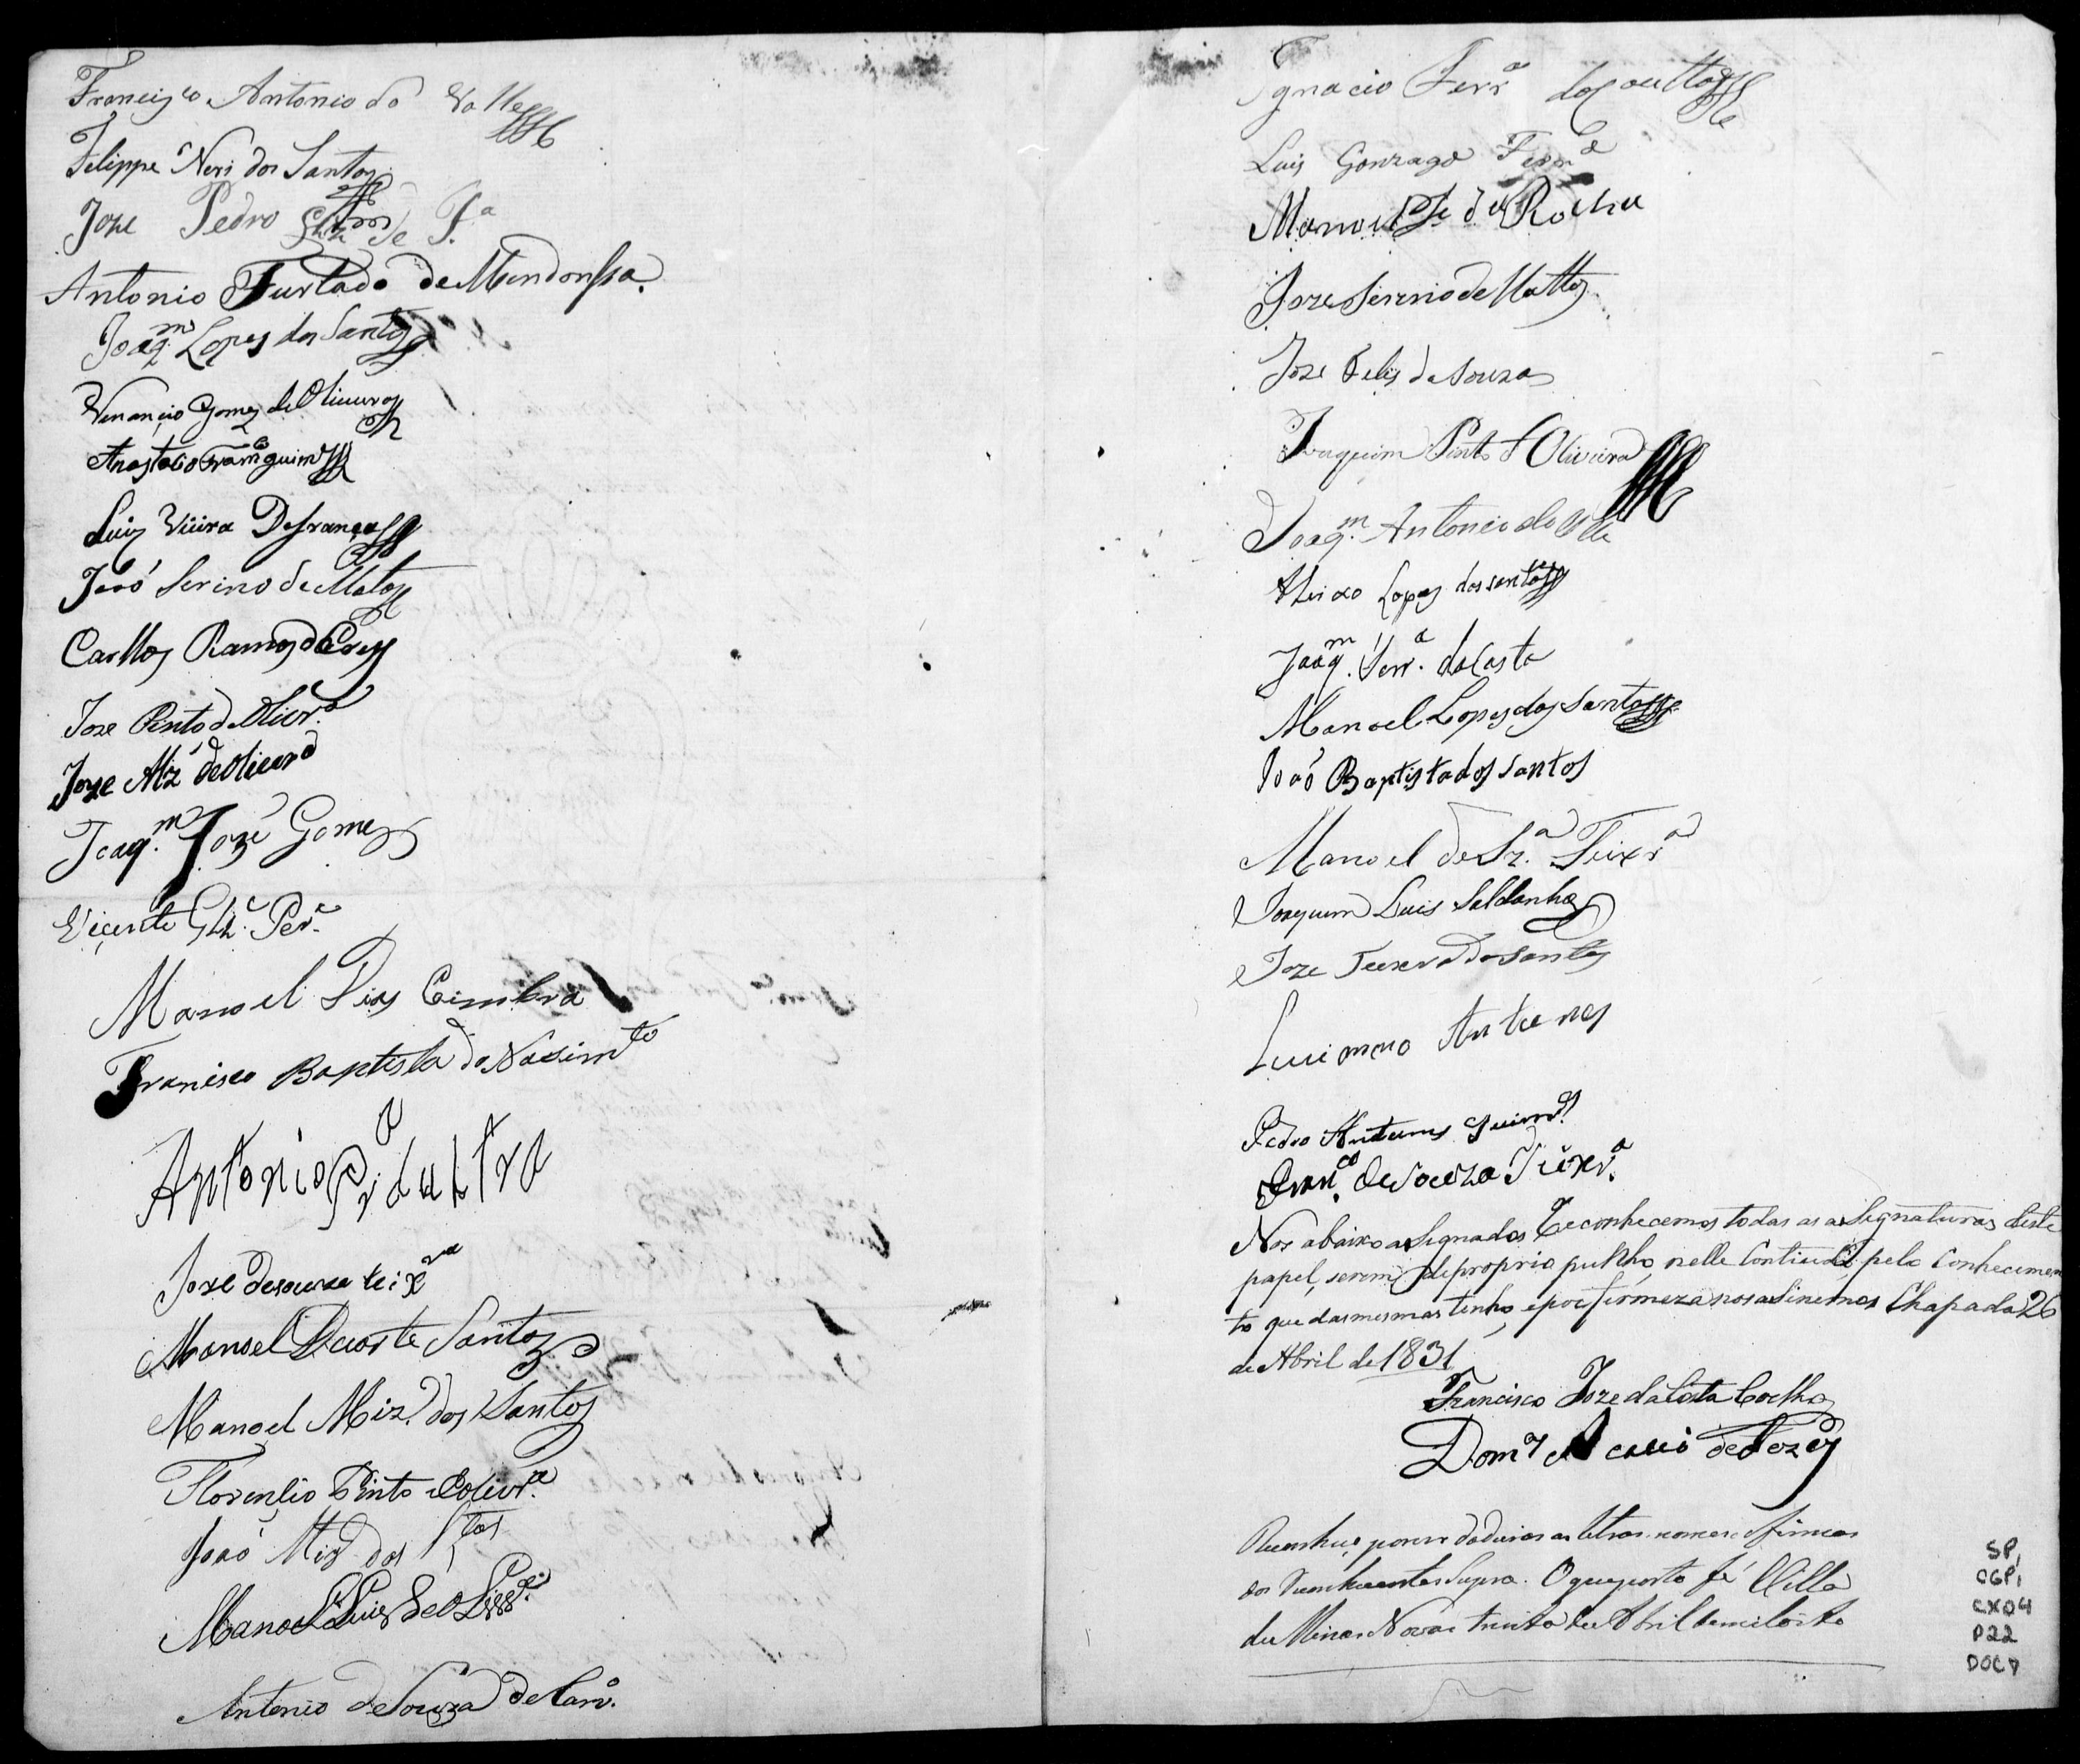 Francisco Antonio do Valle
Felippe Neri dos Santos
Joze Pedro de Sa
Antonio Furtado de Mendonssa
Joaqm Lopes dos Santos
Venancio Gomes de Oliveira
Anastacio
Luiz Vieira De França
Joaó Serino de Matos
Carllos Ramos da Cruz
Joze Pinto de Olivra
Joze Miz de Olivera
Joaqm Jozé Gomes
Viçente Glz Per.a
Manoel Dias Coimbra
Francisco Baptista do Nasimto
Antonio Pra dultra
Joze desouza teixra
Manoel Duarte Santos
Manoel Miz dos Santos
Florençio Pinto de Olivra
Joaó Miz dos Stos
Manoel Luis de
Antonio de Souza de Carvo
Ignacio Ferra da Coutto
Luis Gonzaga
Manoel Je da Rocha
Joze Serino de Mattos
Joze Felis de Souza
Joaquim Pinto d'Oliveira
Joaqm Antonio do Vale
Aleixo Lopes dos santos
Joaqm Ferra da Costa
Manoel Lopes dos Santos
Joaó Baptista dos Santos
Manoel de Sza Teixra
Joaquim Luis Saldanha
Joze Teixera dos Santos
Luciano Antunes
Pedro Antunes Guimes
Franco de Souza Teixra
Nos abaixo asignados Reconhecemos todas as asignaturas deste
papel, serem do proprio punho, nelle Contiudo, pelo Conhecimen
to que das mesmas tenho, e por firmeza nos asinemos Chapada 26
de Abril de 1831
Francisco Joze da Costa Coelho
Domos Acacio de
Reconheço por verdadeiras as letras nomes e firmas
dos Reconhecentes Supra. O que porto fé Villa
de Minas Novas trinta de Abril de mil oito
SP,
CGP,
CX04
P22
DOC7